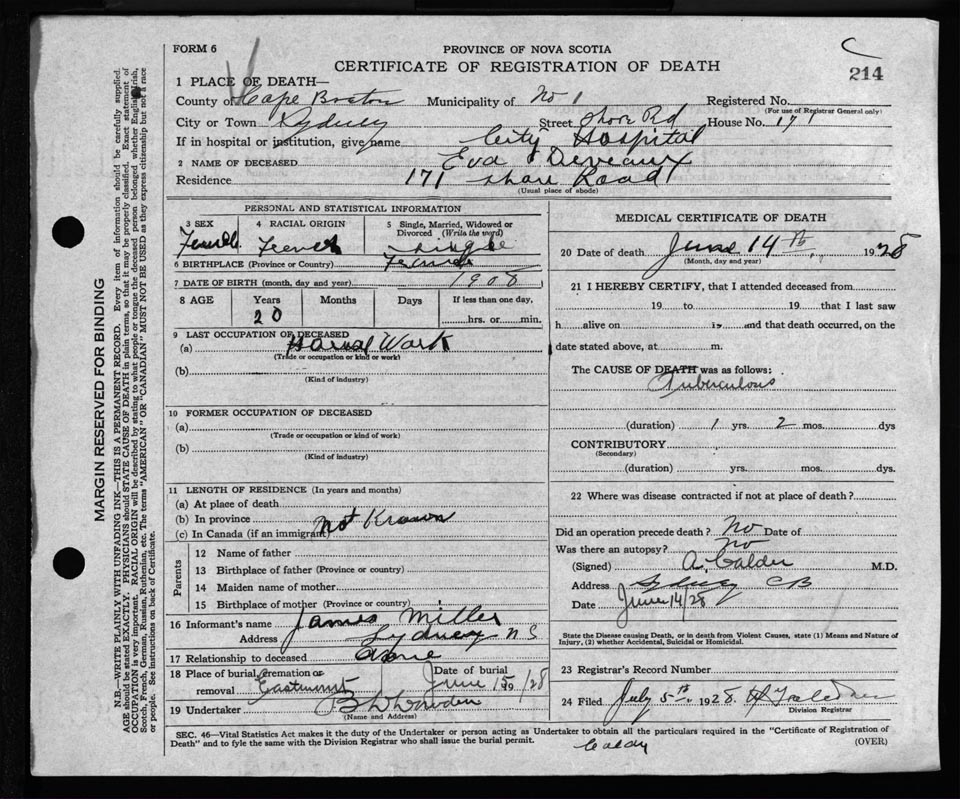 FORM 6
PROVINCE OF NOVA SCOTIA
CERTIFICATE OF REGISTRATION OF DEATH
214
1 PLACE OF DEATH—
County of Cape Breton Municipality of No 1 Registered No.
(For use of Registrar General only)
City or Town Sydney Street Shore Rd House No. 171
If in hospital or institution, give name City Hospital
2 NAME OF DECEASED Eva Deveaux
Residence 171 Shore Road
(Usual place of abode)
PERSONAL AND STATISTICAL INFORMATION
3 SEX
Female
4 RACIAL ORIGIN
French
5 Single, Married, Widowed or Divorced (Write the word)
Single
6 BIRTHPLACE (Province or Country)
7 DATE OF BIRTH (month, day and year) 1908
8 AGE Years Months Days If less than one day,
20 hrs. or min.
9 LAST OCCUPATION OF DECEASED
(a) House Work
(Trade or occupation or kind of work)
(b)
(Kind of industry)
10 FORMER OCCUPATION OF DECEASED
(a)
(Trade or occupation or kind of work)
(b)
(Kind of industry)
11 LENGTH OF RESIDENCE (In years and months)
(a) At place of death
(b) In province
(c) In Canada (if an immigrant) Not Known
Parents
12 Name of father
13 Birthplace of father (Province or country)
14 Maiden name of mother
15 Birthplace of mother (Province or country)
16 Informant's name James Miller
Address Sydney N S
17 Relationship to deceased None
18 Place of burial, cremation or removal Eastmount Date of burial June 15 19/28
19 Undertaker
(Name and Address)
MEDICAL CERTIFICATE OF DEATH
20 Date of death June 14th, 1928
(Month, day and year)
21 I HEREBY CERTIFY, that I attended deceased from
19 to 19 that I last saw
h alive on 19 and that death occurred, on the
date stated above, at m.
The CAUSE OF DEATH was as follows:
Tuberculous
(duration) 1 yrs. 2 mos. dys
CONTRIBUTORY
(Secondary)
(duration) yrs. mos. dys.
22 Where was disease contracted if not at place of death?
Did an operation precede death? No Date of
Was there an autopsy? No
(Signed) A. Calder M.D.
Address Sydney CB
Date June 14/28
State the Disease causing Death, or in death from Violent Causes, state (1) Means and Nature of
Injury, (2) whether Accidental, Suicidal or Homicidal.
23 Registrar's Record Number
24 Filed July 5th, 1928
Division Registrar
SEC. 46—Vital Statistics Act makes it the duty of the Undertaker or person acting as Undertaker to obtain all the particulars required in the "Certificate of Registration of
Death" and to fyle the same with the Division Registrar who shall issue the burial permit.
(OVER)
MARGIN RESERVED FOR BINDING
N.B.—WRITE PLAINLY WITH UNFADING INK—THIS IS A PERMANENT RECORD. Every item of information should be carefully supplied.
AGE should be stated EXACTLY. PHYSICIANS should STATE CAUSE OF DEATH in plain terms, so that it may be properly classified. Exact statement of
OCCUPATION is very important. RACIAL ORIGIN will be described by stating to what people or tongue the deceased person belonged whether English, Irish,
Scotch, French, German, Russian, Ruthenian, etc. The terms "AMERICAN" OR "CANADIAN" MUST NOT BE USED as they express citizenship but not a race
or people. See instructions on back of Certificate.